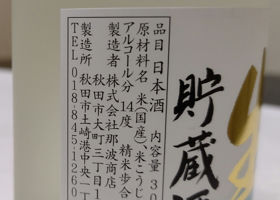 生
貯蔵酒
品目 日本酒 内容量 30
原材料名 米(国産)、米こうじ
アルコール分 14度 精米歩合
製造者 株式会社那波商店
秋田市大町三丁目1
製造所 秋田市土崎港中央一丁
TEL 018-845-1260